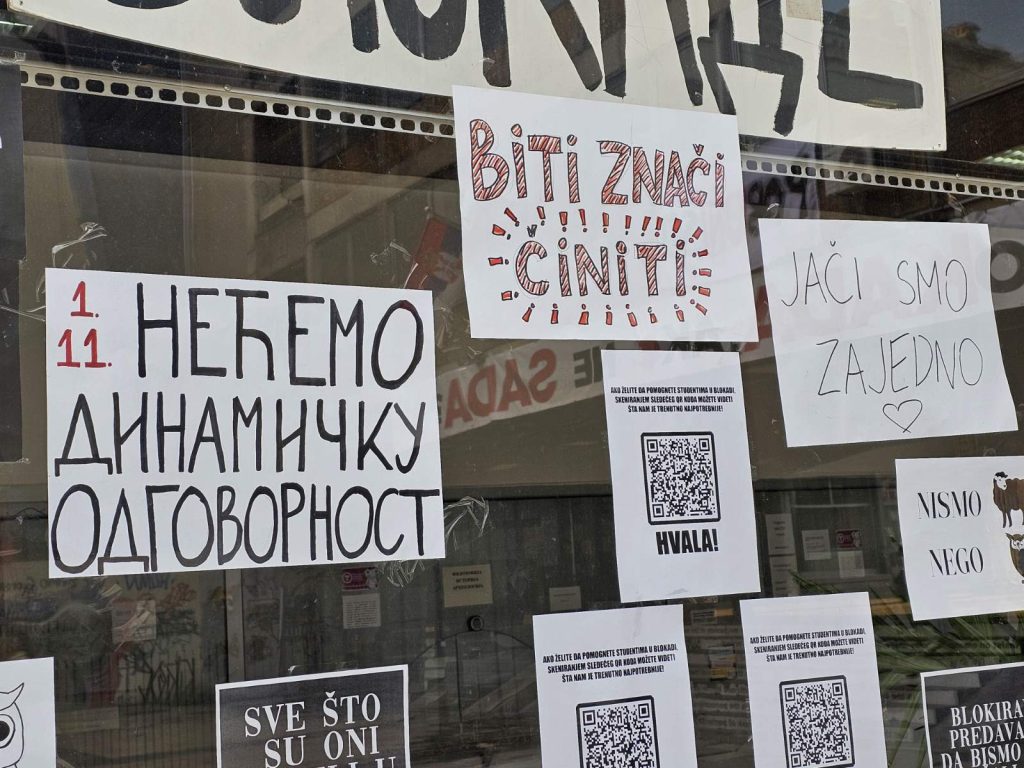 BITI ZNAČI
ČINITI
JAČI SMO
ZAJEDNO
1.
11.
НЕЋЕМО
ДИНАМИЧКУ
ОДГОВОРНОСТ
SADA
AKO ŽELITE DA POMOGNETE STUDENTIMA U BLOKADI,
SKENIRANJEM SLEDEĆEG QR KODA MOŽETE VIDETI
ŠTA NAM JE TRENUTNO NAJPOTREBNIJE!
HVALA!
NISMO
NEGO
AKO ŽELITE DA POMOGNETE STUDENTIMA U BLOKADI,
SKENIRANJEM SLEDEĆEG QR KODA MOŽETE VIDETI
ŠTA NAM JE TRENUTNO NAJPOTREBNIJE!
AKO ŽELITE DA POMOGNETE STUDENTIMA U BLOKADI,
SKENIRANJEM SLEDEĆEG QR KODA MOŽETE VIDETI
ŠTA NAM JE TRENUTNO NAJPOTREBNIJE!
SVE ŠTO
SU ONI
BLOKIRA
PREDAVA
DA BISMO